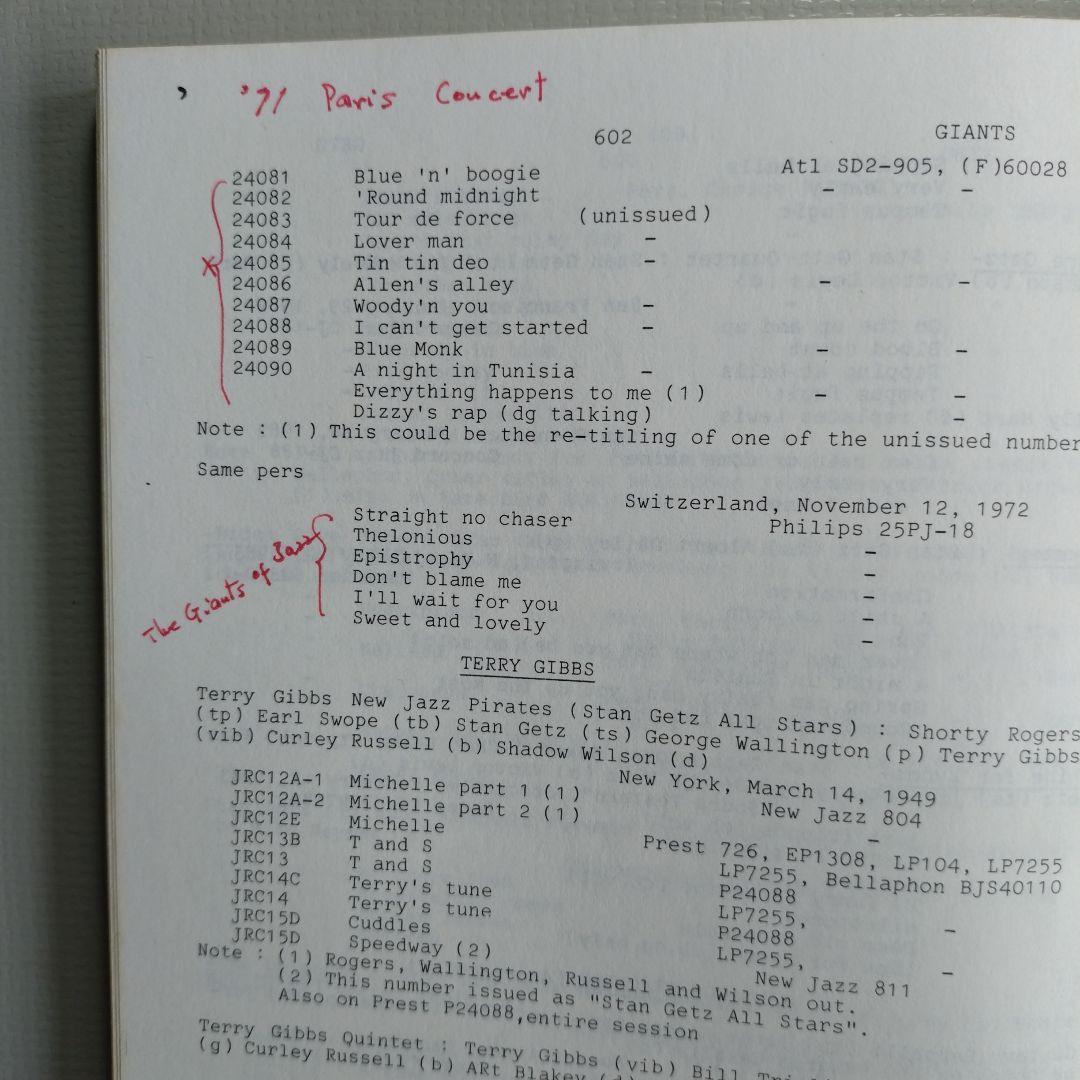 '71 Paris Concert
602 GIANTS
Atl SD2-905, (F)60028
24081 Blue 'n' boogie – –
24082 'Round midnight
24083 Tour de force (unissued)
24084 Lover man –
x 24085 Tin tin deo –
24086 Allen's alley – –
24087 Woody'n you –
24088 I can't get started –
24089 Blue Monk – –
24090 A night in Tunisia –
Everything happens to me (1) – –
Dizzy's rap (dg talking) –
Note : (1) This could be the re-titling of one of the unissued number
Same pers
Switzerland, November 12, 1972
The Giants of Jazz
Straight no chaser Philips 25PJ-18
Thelonious –
Epistrophy –
Don't blame me –
I'll wait for you –
Sweet and lovely –
TERRY GIBBS
Terry Gibbs New Jazz Pirates (Stan Getz All Stars) : Shorty Rogers
(tp) Earl Swope (tb) Stan Getz (ts) George Wallington (p) Terry Gibbs
(vib) Curley Russell (b) Shadow Wilson (d)
New York, March 14, 1949
JRC12A-1 Michelle part 1 (1) New Jazz 804
JRC12A-2 Michelle part 2 (1) –
JRC12E Michelle Prest 726, EP1308, LP104, LP7255
JRC13B T and S LP7255, Bellaphon BJS40110
JRC13 T and S P24088
JRC14C Terry's tune LP7255, –
JRC14 Terry's tune P24088
JRC15D Cuddles LP7255, –
JRC15D Speedway (2) New Jazz 811
Note : (1) Rogers, Wallington, Russell and Wilson out.
(2) This number issued as "Stan Getz All Stars".
Also on Prest P24088,entire session
Terry Gibbs Quintet : Terry Gibbs (vib) Bill
(g) Curley Russell (b) ARt Blakey